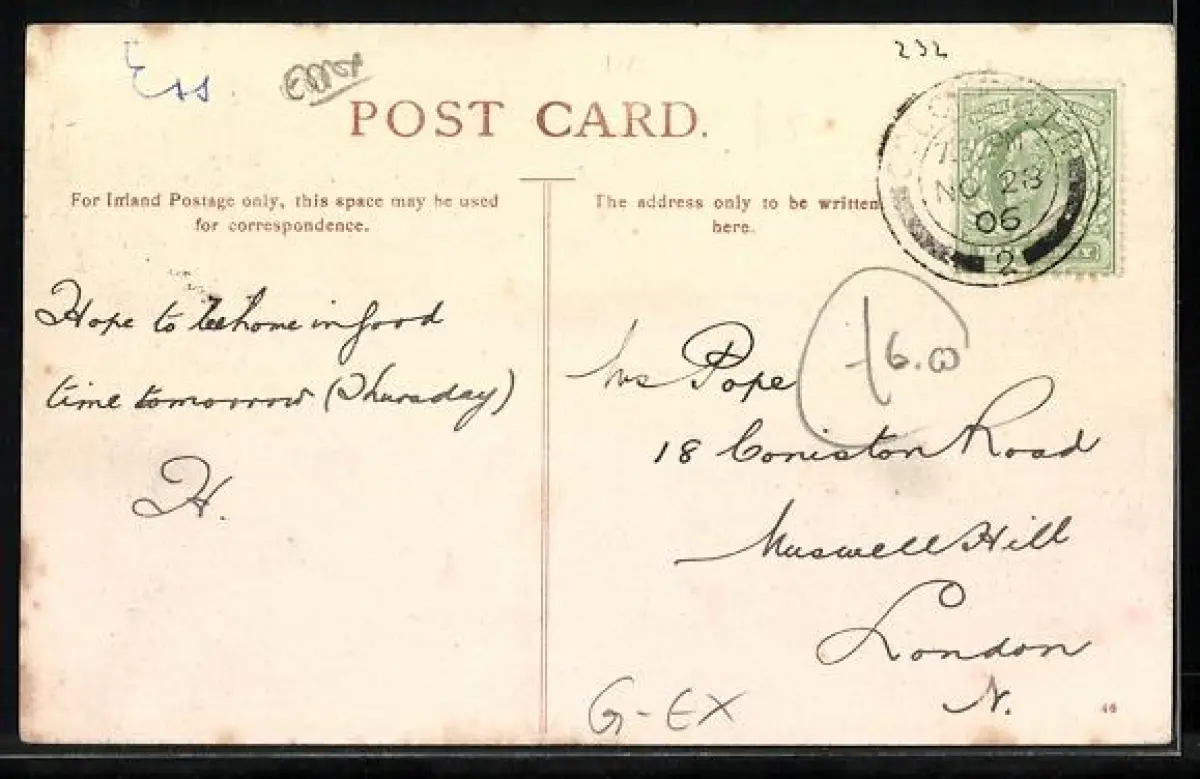 Ess.
232
POST CARD.
For Inland Postage only, this space may be used
for correspondence.
The address only to be written
here.
7.30 PM
NO 28
06
2
Hope to be home in good
time tomorrow (Thursday)
H.
£6.00
Mrs Pope
18 Coniston Road
Muswell Hill
London
N.
G-EX
46